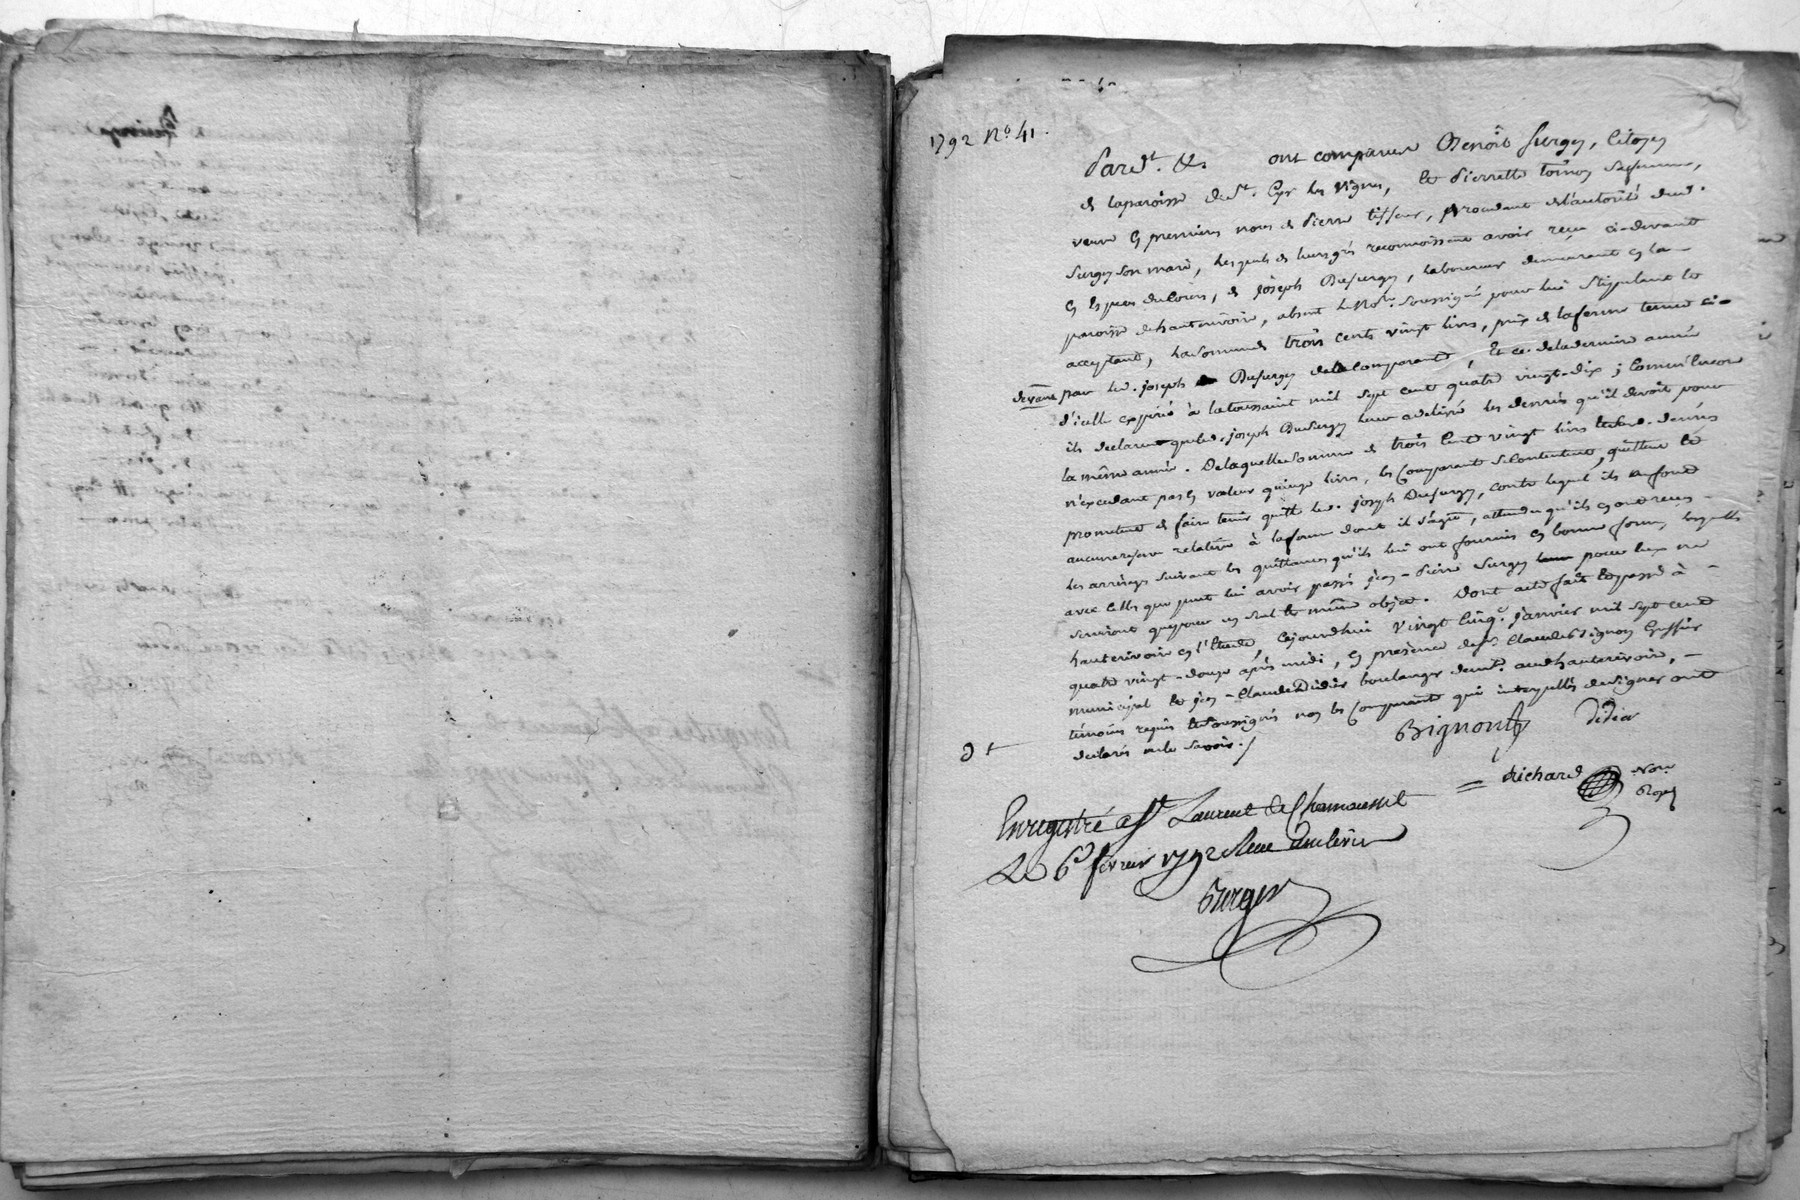 1792 N.o 41.
Pard.t &c ont comparu Benoît Surgey, Citoyen
de la paroisse de St. Cyr les Vignes, et Pierrette
veuve en premieres noces de Pierre tisseur, procedant de l'autorité dud.
Surgey son mari, lesquels de leurs grés reconnoissent avoir reçu ci-devant
en especes de cours, de joseph Dusurgey, laboureur demeurant en la
paroisse de hauterivoire, absent le Nore. soussigné pour lui stipulant et
acceptant, la somme de trois cents vingt livres, prix de la ferme tenue ci-
devant par led. joseph Dusurgey de la Comparante, Et ce de la derniere année
d'icelle expirée à la toussaint mil sept cent quatre vingt-dix ; Comme Encore
ils declarent que led. joseph Dusurgey leur a delivré les denrées qu'il devoit pour
la même année. De laquelle somme de trois Cent vingt livres et desd. denrées
n'excedant pas en valeur quinze livres, les Comparants se Contentent, quittent et
promettent de faire tenir quitte led. joseph Dusurgey, contre lequel ils ne font
aucune reserve relative à la ferme dont il s'agit, attendu qu'ils en ont reçus
les arrérages suivant les quittances qu'ils lui ont fournis en bonne forme, lesquelles
avec Celles que peut lui avoir passés jean-Pierre Surgey pour eux ne
serviront que pour un seul et même objet. Dont acte fait et passé à
hauterivoire en l'Etude, Cejourdhui Vingt Cinq. janvier mil sept cent
quatre vingt-douze après midi, en présence de sr. Claude Bignon greffier
municipal et jean-Claude Didier boulanger demts. aud. hauterivoire,
témoins requis et soussignés non les Comparants qui interpellés de signer ont
declarés ne le savoir./
Bignon Didier
Richard Nore
Royal
Enregistré a St Laurent de Chamousset
Le 6 fevrier 1792
Berger